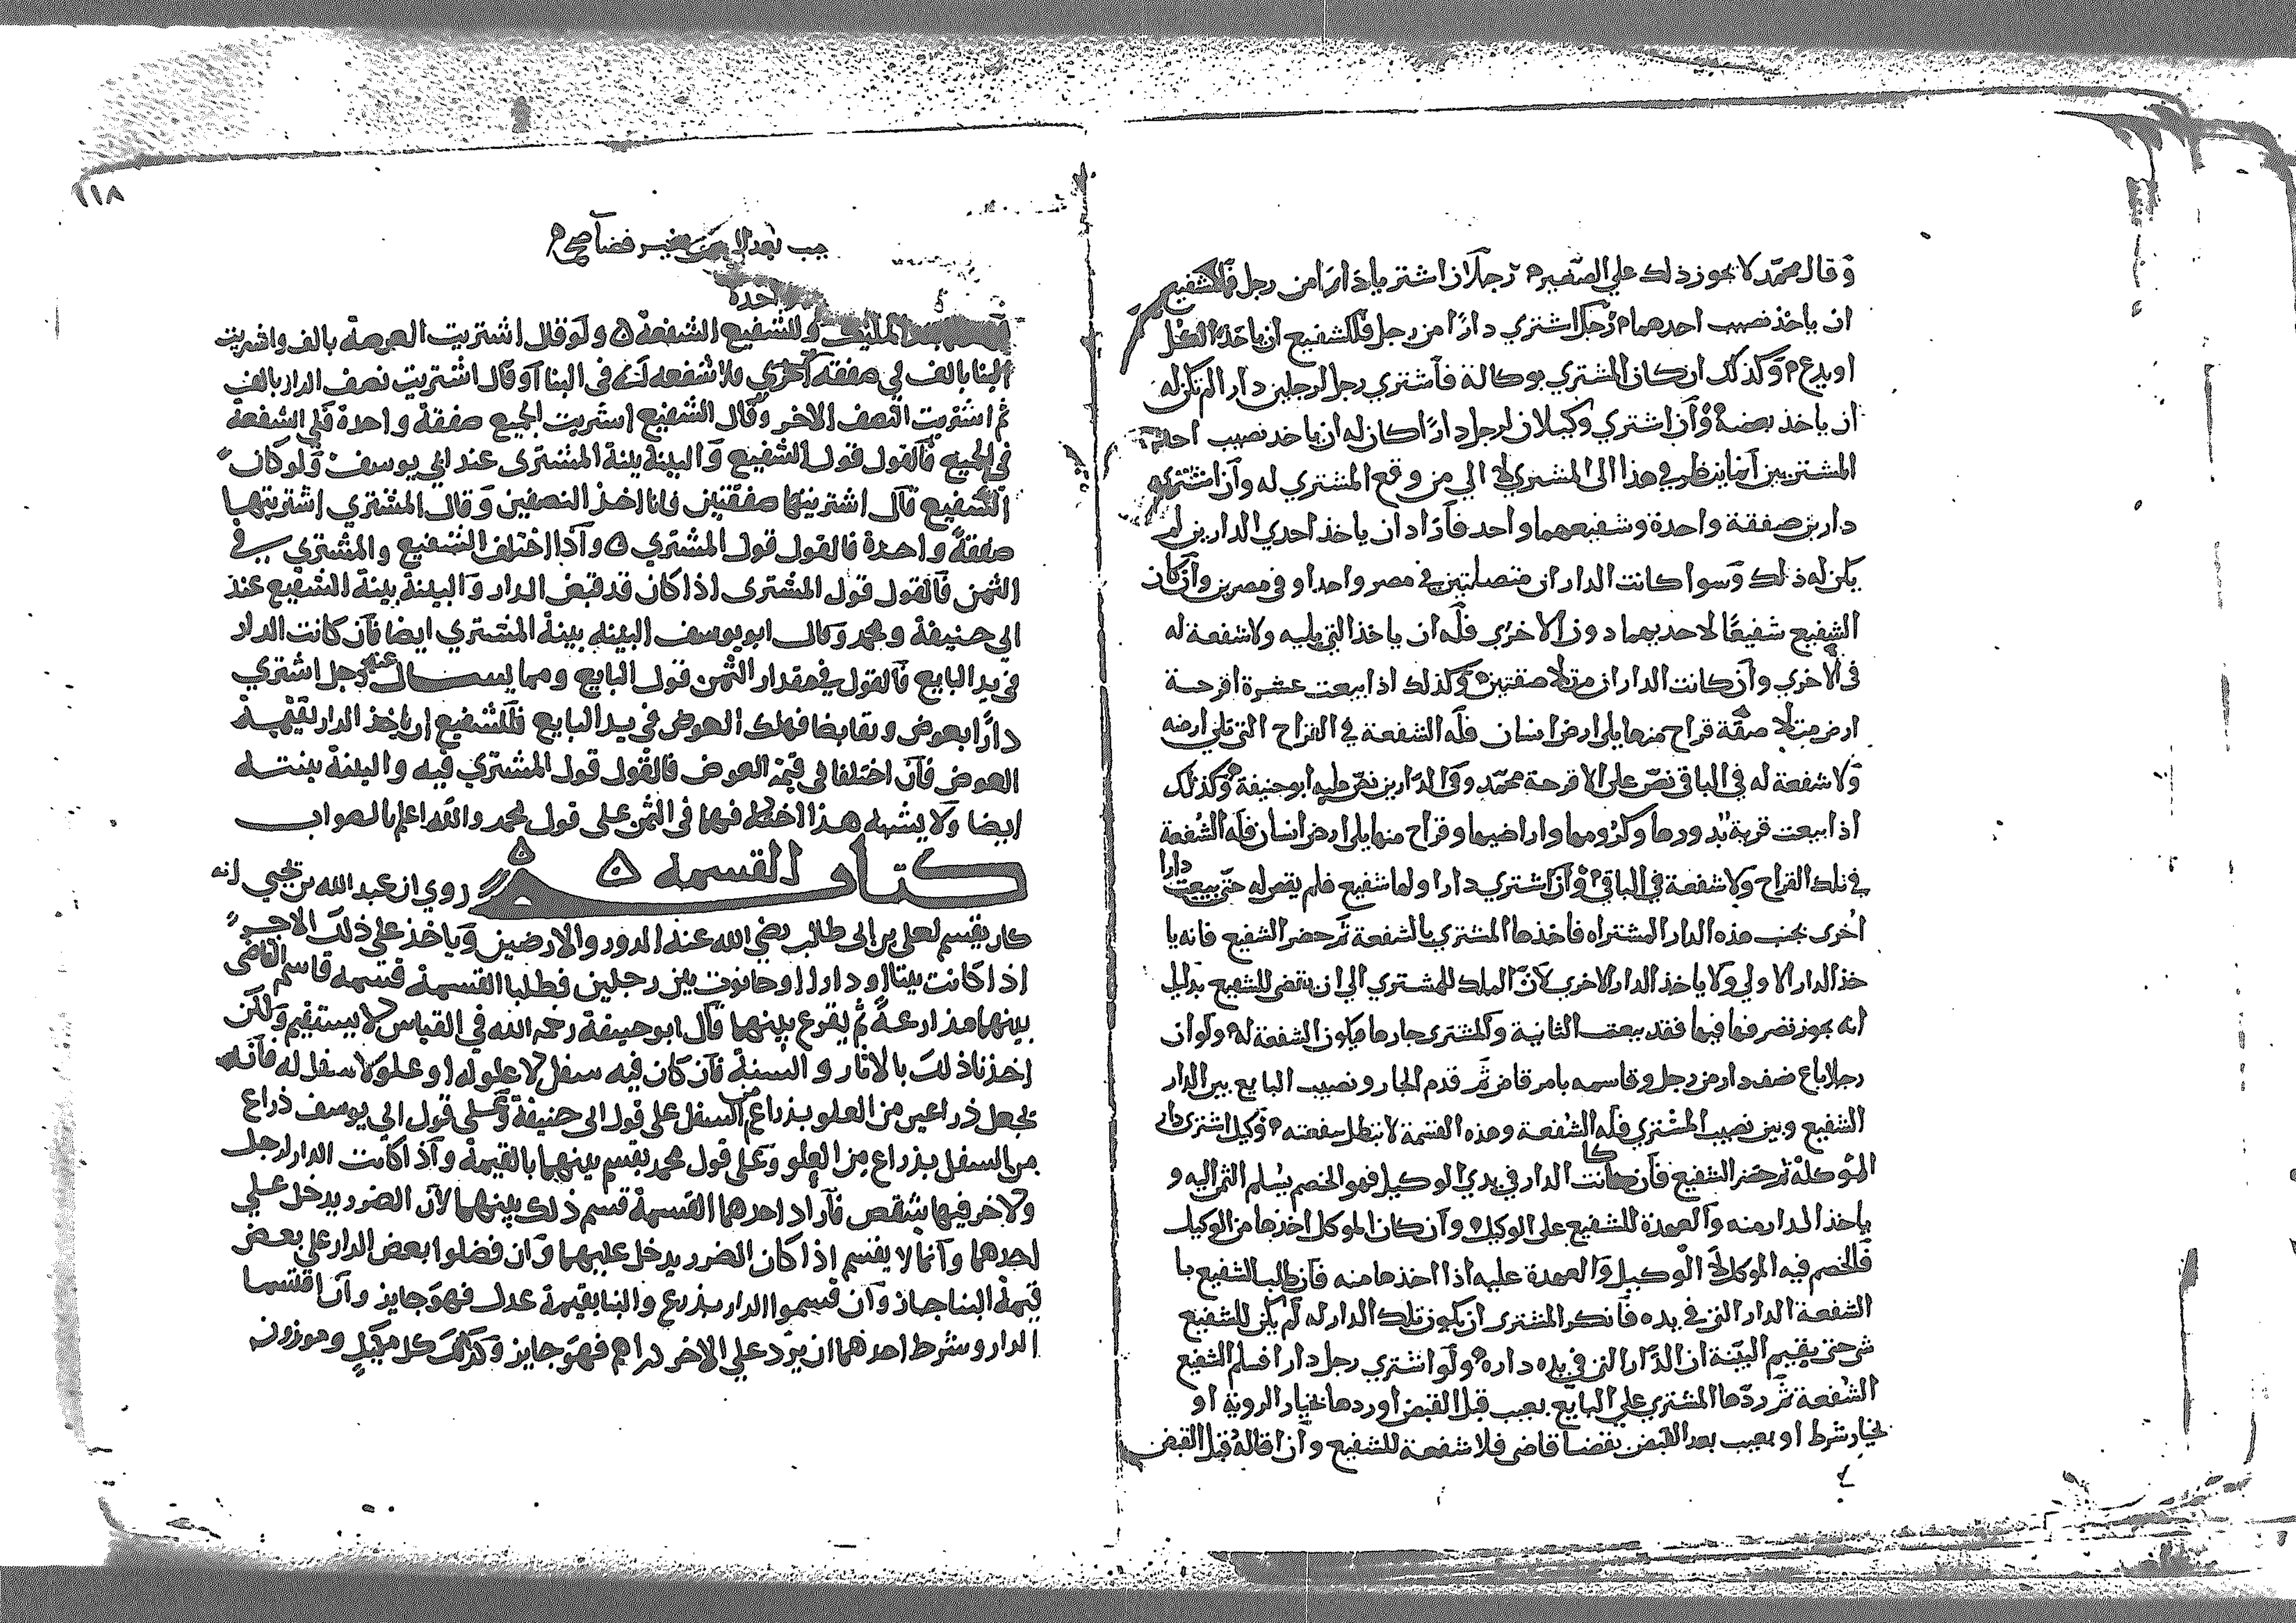 وقال محمد لا يجوز ذلك علي الصغير رجلان اشتريا دارا من رجل فللشفيع
ان ياخذ نصيب احدهما رجل اشتري دارا من رجل فللشفيع ان ياخذ الكل
او يدع وكذلك ان كان المشتري بوكالة فاشتري رجل لرجلين دار الم يكن له
ان ياخذ بعضه وان اشتري وكيلان لرجل دارا كان له ان ياخذ نصيب احد
المشتريين انما ينظر في هذا الى المشتري لا الي من وقع المشتري له وان اشتري
دارين صفقة واحدة وشفيعهما واحد فاراد ان ياخذ احدي الدارين لم
يكن له ذلك وسوا كانت الدار ان متصلتين في مصر واحد او في مصرين وان كان
الشفيع شفيعا لاحديهما دون الاخري فله ان ياخذ التي يليه ولا شفعة له
في الاخري وان كانت الدار ان متلاصقتين وكذلك اذا بيعت عشرة اقرحة
ارض متلاصقة قراح منها يلي ارض انسان فله الشفعة في القراح التي تلي ارضه
ولا شفعة له في الباقي نص على الاقرحة محمد وفي الدارين نص عليه ابو حنيفة وكذلك
اذا بيعت قرية بدورها وكرومها واراضيها وقراح منها يلي ارض انسان فله الشفعة
في تلك القراح ولا شفعة في الباقي وان اشتري دارا ولها شفيع فلم يقض له حتى بيعت دارا
اخرى بجنب هذه الدار المشتراه فاخذها المشتري بالشفعة ثم حضر الشفيع فانه يا
خذ الدار الاولي ولا ياخذ الدار الاخري لان الملك للمشتري الي ان يقضي للشفيع بدليل
انه يجوز تصرفها فيها فقد بيعت الثانية والمشتري جارها فيكون الشفعة له ولو ان
رجلا باع نصف دار من رجل وقاسمه بامر قاض ثم قدم الجار ونصيب البايع بين الدار
الشفيع وبين نصيب المشتري فله الشفعة وهذه القسمة لا تبطل شفعته وكيل اشتري دارا
لموكله ثم حضر الشفيع فان كانت الدار في يدي الوكيل فهو الخصم يسلم الثمن اليه و
ياخذ الدار منه والعهدة للشفيع على الوكيل وان كان الموكل اخذها من الوكيل
فالخصم فيه الموكل لا الوكيل والعهدة عليه اذا اخذها منه فان طلب الشفيع با
الشفعة الدار التي في يده فانكر المشتري ان يكون تلك الدار له لم يكن للشفيع
شي حتى يقيم البينة ان الدار التي في يده داره ولو اشتري رجل دارا فسلم الشفيع
الشفعة ثم ردها المشتري علي البايع بعيب قبل القبض او ردها بخيار الروية او
بخيار شرط او بعيب بعد القبض بقضا قاض فلا شفعة للشفيع وان اقاله قبل القبض
١١٨
بعد القبض بغير قضا صح
وللشفيع الشفعة ولو قال اشتريت العرصة بالف واشتريت
البنا بالف في صفقة اخري فلا شفعه لك في البنا او قال اشتريت نصف الدار بالف
ثم اشتريت النصف الاخر وقال الشفيع اشتريت الجميع صفقة واحدة فلي الشفعة
في الجميع فالقول قول الشفيع والبينة بينة المشتري عند ابي يوسف ولو كان
الشفيع قال اشتريتها صفقتين فانا اخذ النصفين وقال المشتري اشتريتها
صفقة واحدة فالقول قول المشتري واذا اختلف الشفيع والمشتري في
الثمن فالقول قول المشتري اذا كان قد قبض الدار والبينة بينة الشفيع عند
ابي حنيفة ومحمد وقال ابو يوسف البينه بينة المشتري ايضا فان كانت الدار
في يد البايع فالقول في مقدار الثمن قول البايع ومما يسال عنه رجل اشتري
دارا بعوض وتقابضا فهلك العوض في يد البايع فللشفيع ان ياخذ الدار بقيمة
العوض فان اختلفا في قيمة العوض فالقول قول المشتري فيه والبينة بينته
ايضا ولا يشبه هذا اختلافهما في الثمن على قول محمد والله اعلم بالصواب
كتاب القسمه روي ان عبد الله بن يحيي انه
كان يقسم لعلي بن ابي طالب رضي الله عنه الدور والارضين وياخذ على ذلك الاجر
اذا كانت بيتا او دارا او حانوت بين رجلين فطلبا القسمة قسمه قاسم القاضي
بينهما مذارعة ثم يقرع بينهما قال ابو حنيفة رحمه الله في القياس لا يستقيم ولكن
اخذنا ذلك بالاثار والسنة فان كان فيه سفل لا علو له او علو لا سفل له فانه
يجعل ذراعين من العلو بذراع من السفل على قول ابي حنيفة وعلى قول ابي يوسف ذراع
من السفل بذراع من العلو وعلى قول محمد يقسم بينهما بالقيمة واذا كانت الدار لرجل
ولاخر فيها شقص فاراد احدهما القسمة قسم ذلك بينهما لان الضرر يدخل علي
احدهما وانما لا يقسم اذا كان الضرر يدخل عليهما وان فضلوا بعض الدار علي بعض
قيمة البنا جاز وان قسموا الدار بذرع والبنا بقيمة عدل فهو جايز وان اقتسما
الدار وشرط احدهما ان يرد علي الاخر دراهم فهو جايز وكذلك كل مكيل وموزون